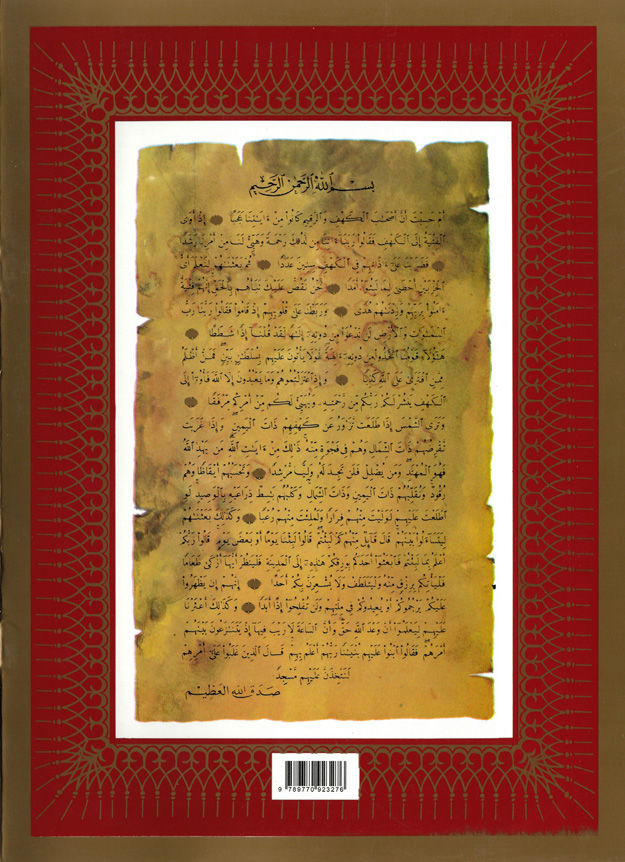 بسم الله الرحمن الرحيم
أَمْ حَسِبْتَ أَنَّ أَصْحَٰبَ ٱلْكَهْفِ وَٱلرَّقِيمِ كَانُوا۟ مِنْ ءَايَٰتِنَا عَجَبًا إِذْ أَوَى
ٱلْفِتْيَةُ إِلَى ٱلْكَهْفِ فَقَالُوا۟ رَبَّنَآ ءَاتِنَا مِن لَّدُنكَ رَحْمَةً وَهَيِّئْ لَنَا مِنْ أَمْرِنَا رَشَدًا
فَضَرَبْنَا عَلَىٰٓ ءَاذَانِهِمْ فِى ٱلْكَهْفِ سِنِينَ عَدَدًا ثُمَّ بَعَثْنَٰهُمْ لِنَعْلَمَ أَىُّ
ٱلْحِزْبَيْنِ أَحْصَىٰ لِمَا لَبِثُوٓا۟ أَمَدًا نَّحْنُ نَقُصُّ عَلَيْكَ نَبَأَهُم بِٱلْحَقِّ إِنَّهُمْ فِتْيَةٌ
ءَامَنُوا۟ بِرَبِّهِمْ وَزِدْنَٰهُمْ هُدًى وَرَبَطْنَا عَلَىٰ قُلُوبِهِمْ إِذْ قَامُوا۟ فَقَالُوا۟ رَبُّنَا رَبُّ
ٱلسَّمَٰوَٰتِ وَٱلْأَرْضِ لَن نَّدْعُوَا۟ مِن دُونِهِۦٓ إِلَٰهًا لَّقَدْ قُلْنَآ إِذًا شَطَطًا
هَٰٓؤُلَآءِ قَوْمُنَا ٱتَّخَذُوا۟ مِن دُونِهِۦٓ ءَالِهَةً لَّوْلَا يَأْتُونَ عَلَيْهِم بِسُلْطَٰنٍۭ بَيِّنٍ فَمَنْ أَظْلَمُ
مِمَّنِ ٱفْتَرَىٰ عَلَى ٱللَّهِ كَذِبًا وَإِذِ ٱعْتَزَلْتُمُوهُمْ وَمَا يَعْبُدُونَ إِلَّا ٱللَّهَ فَأْوُۥٓا۟ إِلَى
ٱلْكَهْفِ يَنشُرْ لَكُمْ رَبُّكُم مِّن رَّحْمَتِهِۦ وَيُهَيِّئْ لَكُم مِّنْ أَمْرِكُم مِّرْفَقًا
وَتَرَى ٱلشَّمْسَ إِذَا طَلَعَت تَّزَٰوَرُ عَن كَهْفِهِمْ ذَاتَ ٱلْيَمِينِ وَإِذَا غَرَبَت
تَّقْرِضُهُمْ ذَاتَ ٱلشِّمَالِ وَهُمْ فِى فَجْوَةٍ مِّنْهُ ذَٰلِكَ مِنْ ءَايَٰتِ ٱللَّهِ مَن يَهْدِ ٱللَّهُ
فَهُوَ ٱلْمُهْتَدِ وَمَن يُضْلِلْ فَلَن تَجِدَ لَهُۥ وَلِيًّا مُّرْشِدًا وَتَحْسَبُهُمْ أَيْقَاظًا وَهُمْ
رُقُودٌ وَنُقَلِّبُهُمْ ذَاتَ ٱلْيَمِينِ وَذَاتَ ٱلشِّمَالِ وَكَلْبُهُم بَٰسِطٌ ذِرَاعَيْهِ بِٱلْوَصِيدِ لَوِ
ٱطَّلَعْتَ عَلَيْهِمْ لَوَلَّيْتَ مِنْهُمْ فِرَارًا وَلَمُلِئْتَ مِنْهُمْ رُعْبًا وَكَذَٰلِكَ بَعَثْنَٰهُمْ
لِيَتَسَآءَلُوا۟ بَيْنَهُمْ قَالَ قَآئِلٌ مِّنْهُمْ كَمْ لَبِثْتُمْ قَالُوا۟ لَبِثْنَا يَوْمًا أَوْ بَعْضَ يَوْمٍ قَالُوا۟ رَبُّكُمْ
أَعْلَمُ بِمَا لَبِثْتُمْ فَٱبْعَثُوٓا۟ أَحَدَكُم بِوَرِقِكُمْ هَٰذِهِۦٓ إِلَى ٱلْمَدِينَةِ فَلْيَنظُرْ أَيُّهَآ أَزْكَىٰ طَعَامًا
فَلْيَأْتِكُم بِرِزْقٍ مِّنْهُ وَلْيَتَلَطَّفْ وَلَا يُشْعِرَنَّ بِكُمْ أَحَدًا إِنَّهُمْ إِن يَظْهَرُوا۟
عَلَيْكُمْ يَرْجُمُوكُمْ أَوْ يُعِيدُوكُمْ فِى مِلَّتِهِمْ وَلَن تُفْلِحُوٓا۟ إِذًا أَبَدًا وَكَذَٰلِكَ أَعْثَرْنَا
عَلَيْهِمْ لِيَعْلَمُوٓا۟ أَنَّ وَعْدَ ٱللَّهِ حَقٌّ وَأَنَّ ٱلسَّاعَةَ لَا رَيْبَ فِيهَآ إِذْ يَتَنَٰزَعُونَ بَيْنَهُمْ
أَمْرَهُمْ فَقَالُوا۟ ٱبْنُوا۟ عَلَيْهِم بُنْيَٰنًا رَّبُّهُمْ أَعْلَمُ بِهِمْ قَالَ ٱلَّذِينَ غَلَبُوا۟ عَلَىٰٓ أَمْرِهِمْ
لَنَتَّخِذَنَّ عَلَيْهِم مَّسْجِدًا
صدق الله العظيم
9 789770 923276